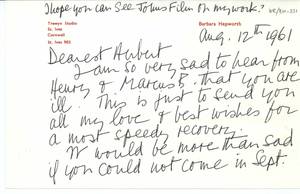 I hope you can see John's Film on my work?
Trewyn Studio
St. Ives
Cornwall
Barbara Hepworth
Aug. 12th 1961
Dearest Herbert
I am so very sad to hear from
Henry & Marcus B. that you are
ill. This is just to send you
all my love & best wishes for
a most speedy recovery.
It would be more than sad
if you could not come in Sept.